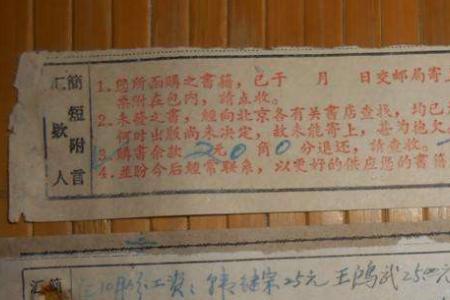 汇款人
簡短附言
1.您所函購之書籍,已于 月 日交邮局寄上
票附在包內,請点收。
2.未發之書,經向北京各有关書店查找,均已
何时出版尚未决定,故未能寄上,甚为抱欠
3.購書余款2元0角0分退还,請查收。
4.並盼今后經常联系,以更好的供应您的書籍
汇
簡
10月份工資:韩继宗25元 王鸿武25元